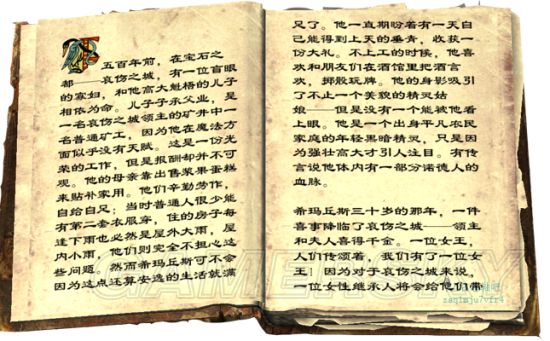 五百年前，在宝石之
都——哀伤之城，有一位盲眼
的寡妇，和他高大魁梧的儿子
相依为命。儿子子承父业，是
一名哀伤之城领主的矿井中一
名普通矿工，因为他在魔法方
面似乎没有天赋。这是一份光
荣的工作，但是报酬却并不可
观。他的母亲靠出售浆果蛋糕
来贴补家用。他们辛勤劳作，
自给自足；当时普通人很少能
有第二套衣服穿，住的房子每
逢下雨也必然是屋外大雨，屋
内小雨，他们则完全不担心这
些问题。然而希玛丘斯可不会
因为这点还算安逸的生活就满
足了。他一直期盼着有一天自
己能得到上天的垂青，收获一
份大礼。不上工的时候，他喜
欢和朋友们在酒馆里把酒言
欢，掷骰玩牌。他的身影吸引
了不止一个美貌的精灵姑
娘——但是没有一个能被他看
上眼。他是一个出身平凡农民
家庭的年轻黑暗精灵，只是因
为强壮高大才引人注目。有传
言说他体内有一部分诺德人的
血脉。
希玛丘斯三十岁的那年，一件
喜事降临了哀伤之城——领主
和夫人喜得千金。一位女王，
人们传颂着，我们有了一位女
王！因为对于哀伤之城来说，
一位女性继承人将会给他们带
GAMERSKY
zaq1mju7vfr4